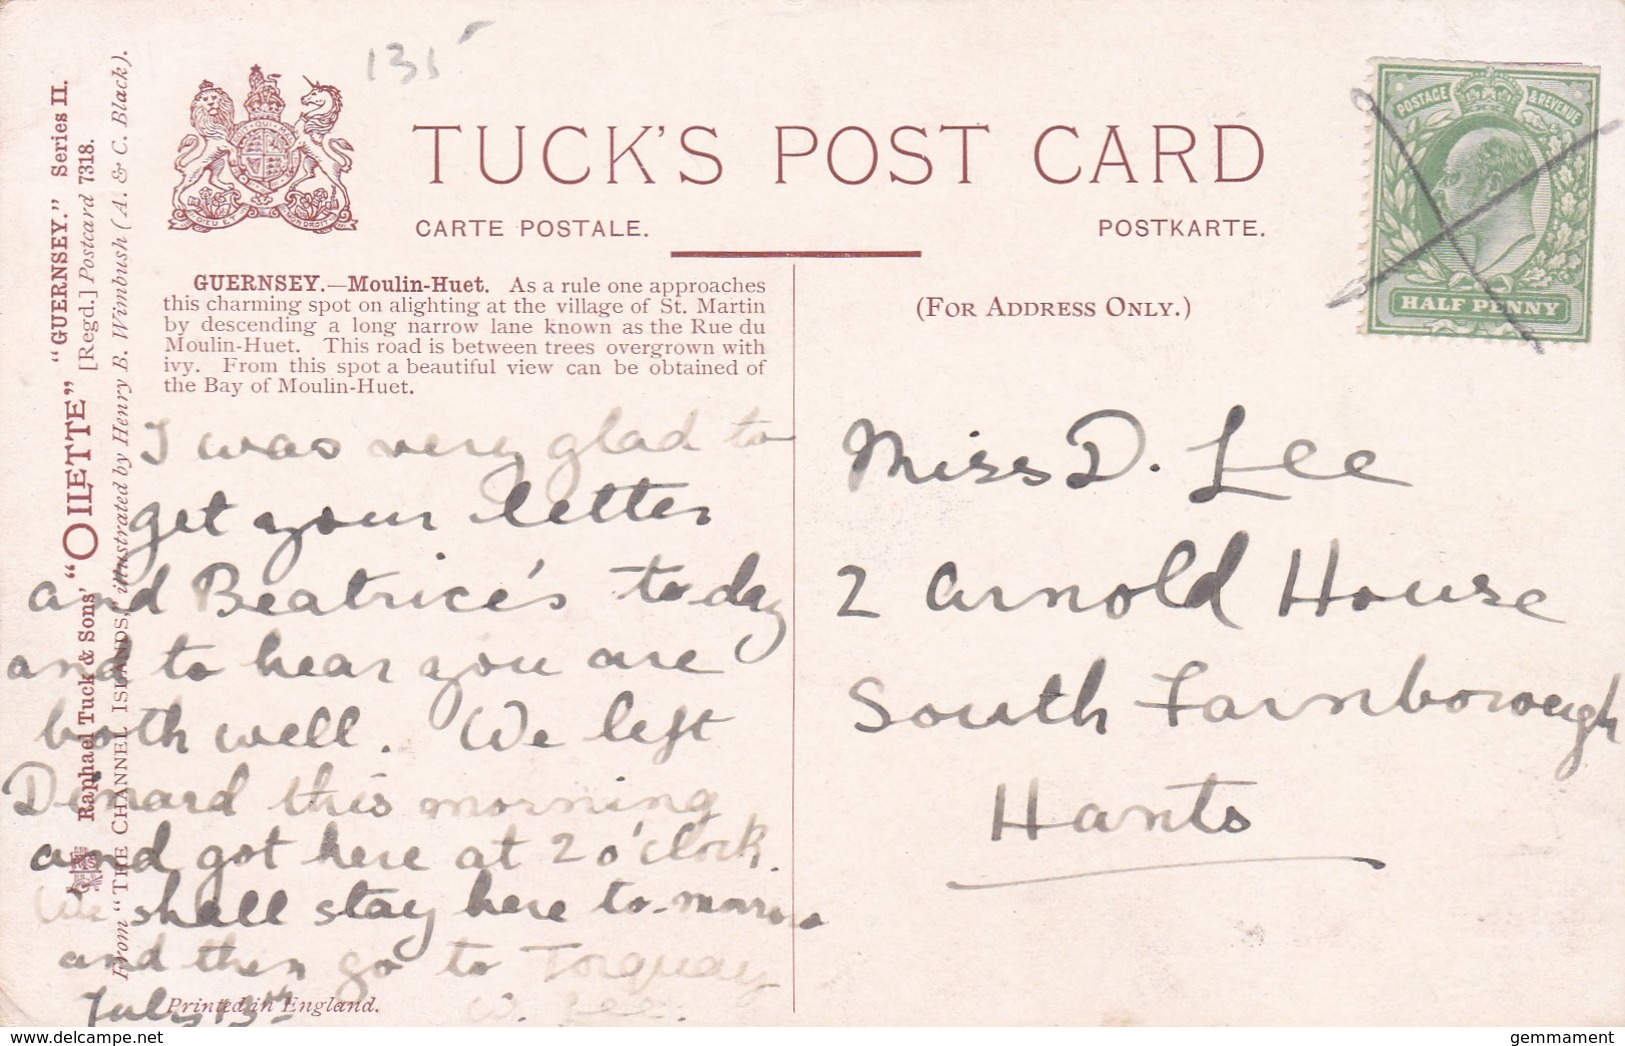 135
TUCK'S POST CARD
CARTE POSTALE.
POSTKARTE.
POSTAGE & REVENUE
HALF PENNY
DIEU ET MON DROIT
"GUERNSEY." Series II.
Raphael Tuck & Sons' "OILETTE" [Regd.] Postcard 7318.
From "THE CHANNEL ISLANDS," illustrated by Henry B. Wimbush (A. & C. Black).
GUERNSEY.—Moulin-Huet. As a rule one approaches
this charming spot on alighting at the village of St. Martin
by descending a long narrow lane known as the Rue du
Moulin-Huet. This road is between trees overgrown with
ivy. From this spot a beautiful view can be obtained of
the Bay of Moulin-Huet.
I was very glad to
get your letter
and Beatrice's to-day
and to hear you are
both well. We left
Dinard this morning
and got here at 2 o'clock.
We shall stay here to-morrow
and then go to Torquay
July 13th
W. Lee.
Printed in England.
(FOR ADDRESS ONLY.)
Miss D. Lee
2 Arnold House
South Farnborough
Hants
delcampe.net
gemmament